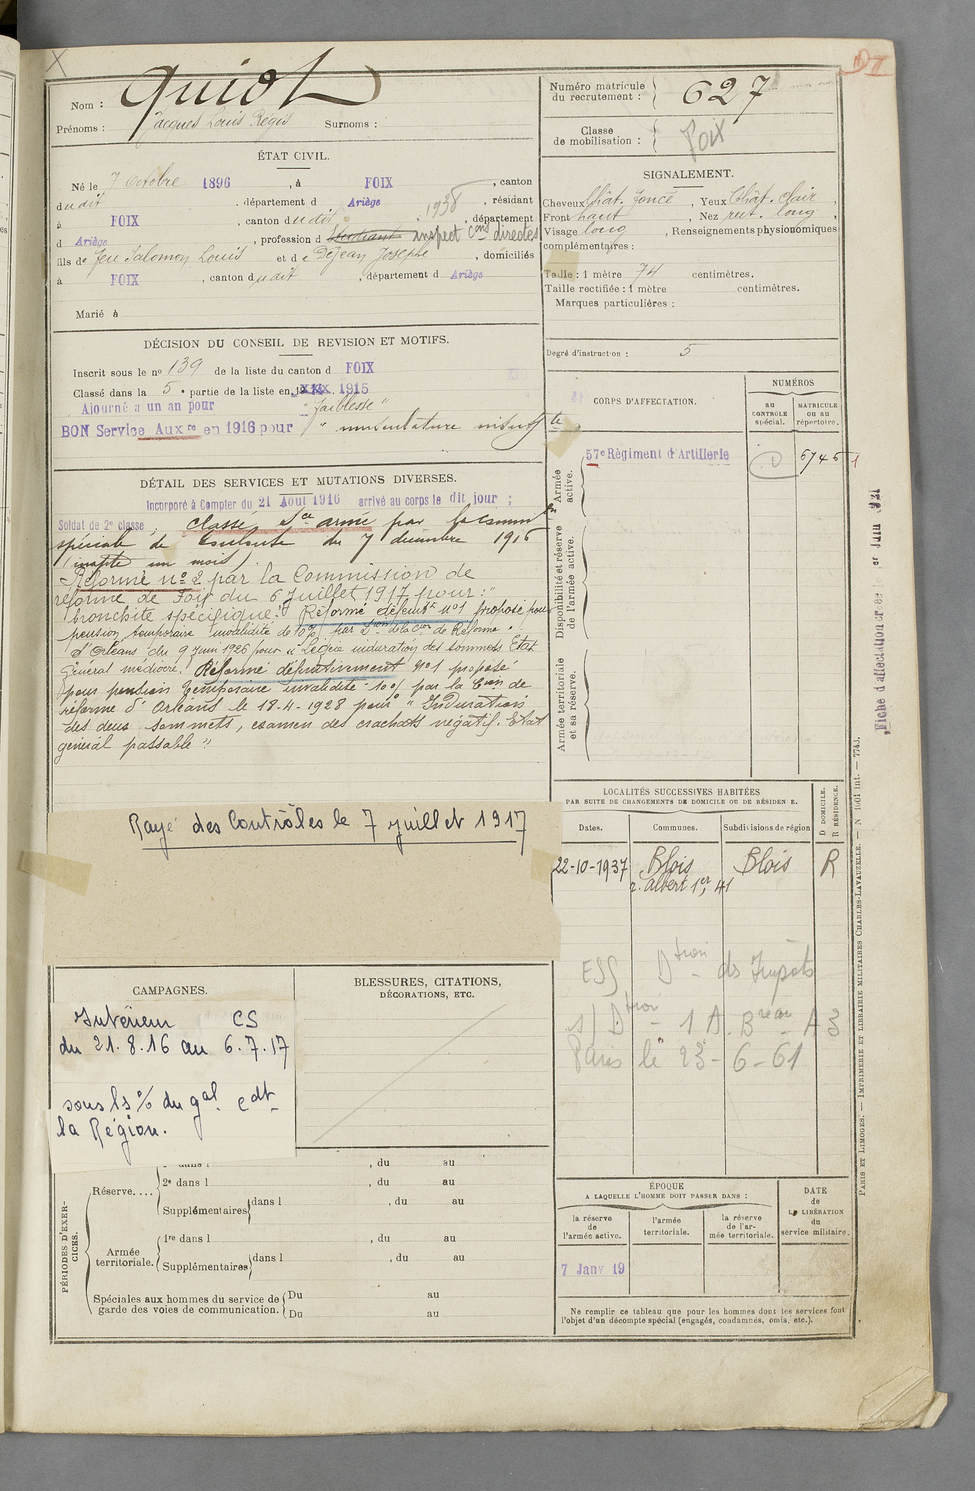 X
Nom : Quiot
Prénoms : Jacques Louis Régis Surnoms :
ÉTAT CIVIL.
Né le 7 Octobre 1896 , à FOIX , canton
dudit , département d Ariège , résidant
à FOIX , canton dudit 1938 , département
d Ariège , profession d Etudiant inspect Cons directes
fils de feu Salomon Louis et de Dejean Josephe , domiciliés
à FOIX , canton dudit , département d Ariège
Marié à
DÉCISION DU CONSEIL DE REVISION ET MOTIFS.
Inscrit sous le no 139 de la liste du canton d FOIX
Classé dans la 5e partie de la liste en 1915
Ajourné a un an pour "faiblesse"
BON Service Auxre en 1916 pour " musculature insuffte
DÉTAIL DES SERVICES ET MUTATIONS DIVERSES.
Incorporé à Compter du 21 Août 1916 arrivé au corps le dit jour ;
Soldat de 2e classe, classé Sce armé par la comm on
spéciale de Toulouse du 7 décembre 1916
(inapte un mois).
Réformé no 2 par la Commission de
réforme de Foix du 6 Juillet 1917 pour : "
bronchite spécifique." Réformé définitt no1 proposé pour
pension temporaire invalidité de 10% par don de la Con de Réforme
d'Orléans du 9 Juin 1926 pour "Légère induration des sommets Etat
Général médiocre". Réformé définitivement no1 proposé
pour pension temporaire invalidité 10% par la Con de
réforme d'Orléans le 18-4-1928 pour "Induration
des deux sommets, examen des crachats négatif. Etat
général passable".
Rayé des Contrôles le 7 juillet 1917
CAMPAGNES.
Intérieur CS
du 21.8.16 au 6.7.17
sous ls % du gal. cdt
la Région.
BLESSURES, CITATIONS,
DÉCORATIONS, ETC.
PÉRIODES D'EXERCICES.
Réserve....
, du au
2e dans l , du au
Supplémentaires dans l , du au
Armée territoriale.
1re dans l , du au
Supplémentaires dans l , du au
Spéciales aux hommes du service de garde des voies de communication.
Du au
Du au
Numéro matricule du recrutement : 627
Classe de mobilisation : Foix
SIGNALEMENT.
Cheveux Chât. foncé , Yeux Chât. clair ,
Front haut , Nez rect. long ,
Visage long , Renseignements physionomiques
complémentaires :
Taille : 1 mètre 74 centimètres.
Taille rectifiée : 1 mètre centimètres.
Marques particulières :
Degré d'instruction : 5
CORPS D'AFFECTATION.
NUMÉROS
au CONTRÔLE spécial.
MATRICULE ou au répertoire.
Armée active.
57e Régiment d'Artillerie
Disponibilité et réserve de l'armée active.
Armée territoriale et sa réserve.
LOCALITÉS SUCCESSIVES HABITÉES
PAR SUITE DE CHANGEMENTS DE DOMICILE OU DE RÉSIDENCE.
D DOMICILE. R RÉSIDENCE.
Dates. Communes. Subdivisions de région
22-10-1937 Blois Blois R
r. albert 1er, 41
ESS Dtion ds Impôts
s Dtion - 1 A. Breau - A 3
Paris le 23-6-61
ÉPOQUE
A LAQUELLE L'HOMME DOIT PASSER DANS :
DATE de LA LIBÉRATION du service militaire.
la réserve de l'armée active.
l'armée territoriale.
la réserve de l'armée territoriale.
7 Janv 19
Ne remplir ce tableau que pour les hommes dont les services font
l'objet d'un décompte spécial (engagés, condamnés, omis, etc.).
PARIS ET LIMOGES. — IMPRIMERIE ET LIBRAIRIE MILITAIRES CHARLES-LAVAUZELLE. — N 1001 int. — 7743.